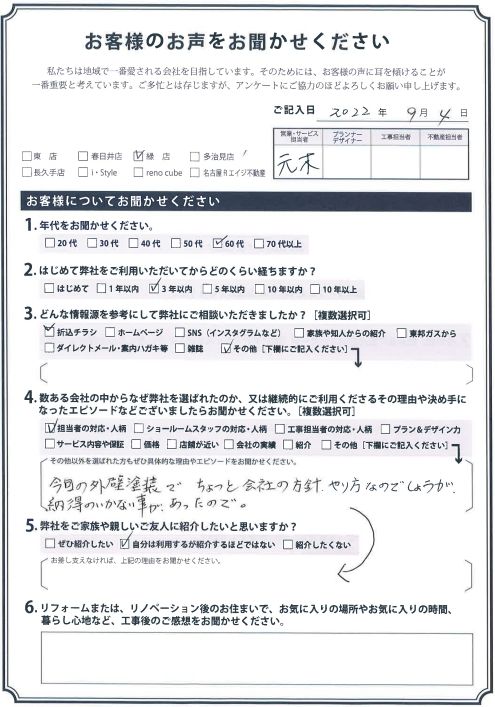 お客様のお声をお聞かせください
私たちは地域で一番愛される会社を目指しています。そのためには、お客様の声に耳を傾けることが
一番重要と考えています。ご多忙とは存じますが、アンケートにご協力のほどよろしくお願い申し上げます。
ご記入日 2022 年 9 月 4 日
営業・サービス担当者 プランナーデザイナー 工事担当者 不動産担当者
元木
□東 店 □春日井店 ☑緑 店 □多治見店
□長久手店 □i・Style □reno cube □名古屋Rエイジ不動産
お客様についてお聞かせください
1. 年代をお聞かせください。
□20代 □30代 □40代 □50代 ☑60代 □70代以上
2. はじめて弊社をご利用いただいてからどのくらい経ちますか?
□はじめて □1年以内 ☑3年以内 □5年以内 □10年以内 □10年以上
3. どんな情報源を参考にして弊社にご相談いただきましたか?[複数選択可]
☑折込チラシ □ホームページ □SNS(インスタグラムなど) □家族や知人からの紹介 □東邦ガスから
□ダイレクトメール・案内ハガキ等 □雑誌 ☑その他[下欄にご記入ください]
4. 数ある会社の中からなぜ弊社を選ばれたのか、又は継続的にご利用くださるその理由や決め手に
なったエピソードなどございましたらお聞かせください。[複数選択可]
☑担当者の対応・人柄 □ショールームスタッフの対応・人柄 □工事担当者の対応・人柄 □プラン&デザイン力
□サービス内容や保証 □価格 □店舗が近い □会社の実績 □紹介 □その他[下欄にご記入ください]
その他以外を選ばれた方もぜひ具体的な理由やエピソードをお聞かせください。
今回の外壁塗装で ちょっと会社の方針.やり方なのでしょうが.
納得のいかない事が.あったので。
5. 弊社をご家族や親しいご友人に紹介したいと思いますか?
□ぜひ紹介したい ☑自分は利用するが紹介するほどではない □紹介したくない
お差し支えなければ、上記の理由をお聞かせください。
6. リフォームまたは、リノベーション後のお住まいで、お気に入りの場所やお気に入りの時間、
暮らし心地など、工事後のご感想をお聞かせください。